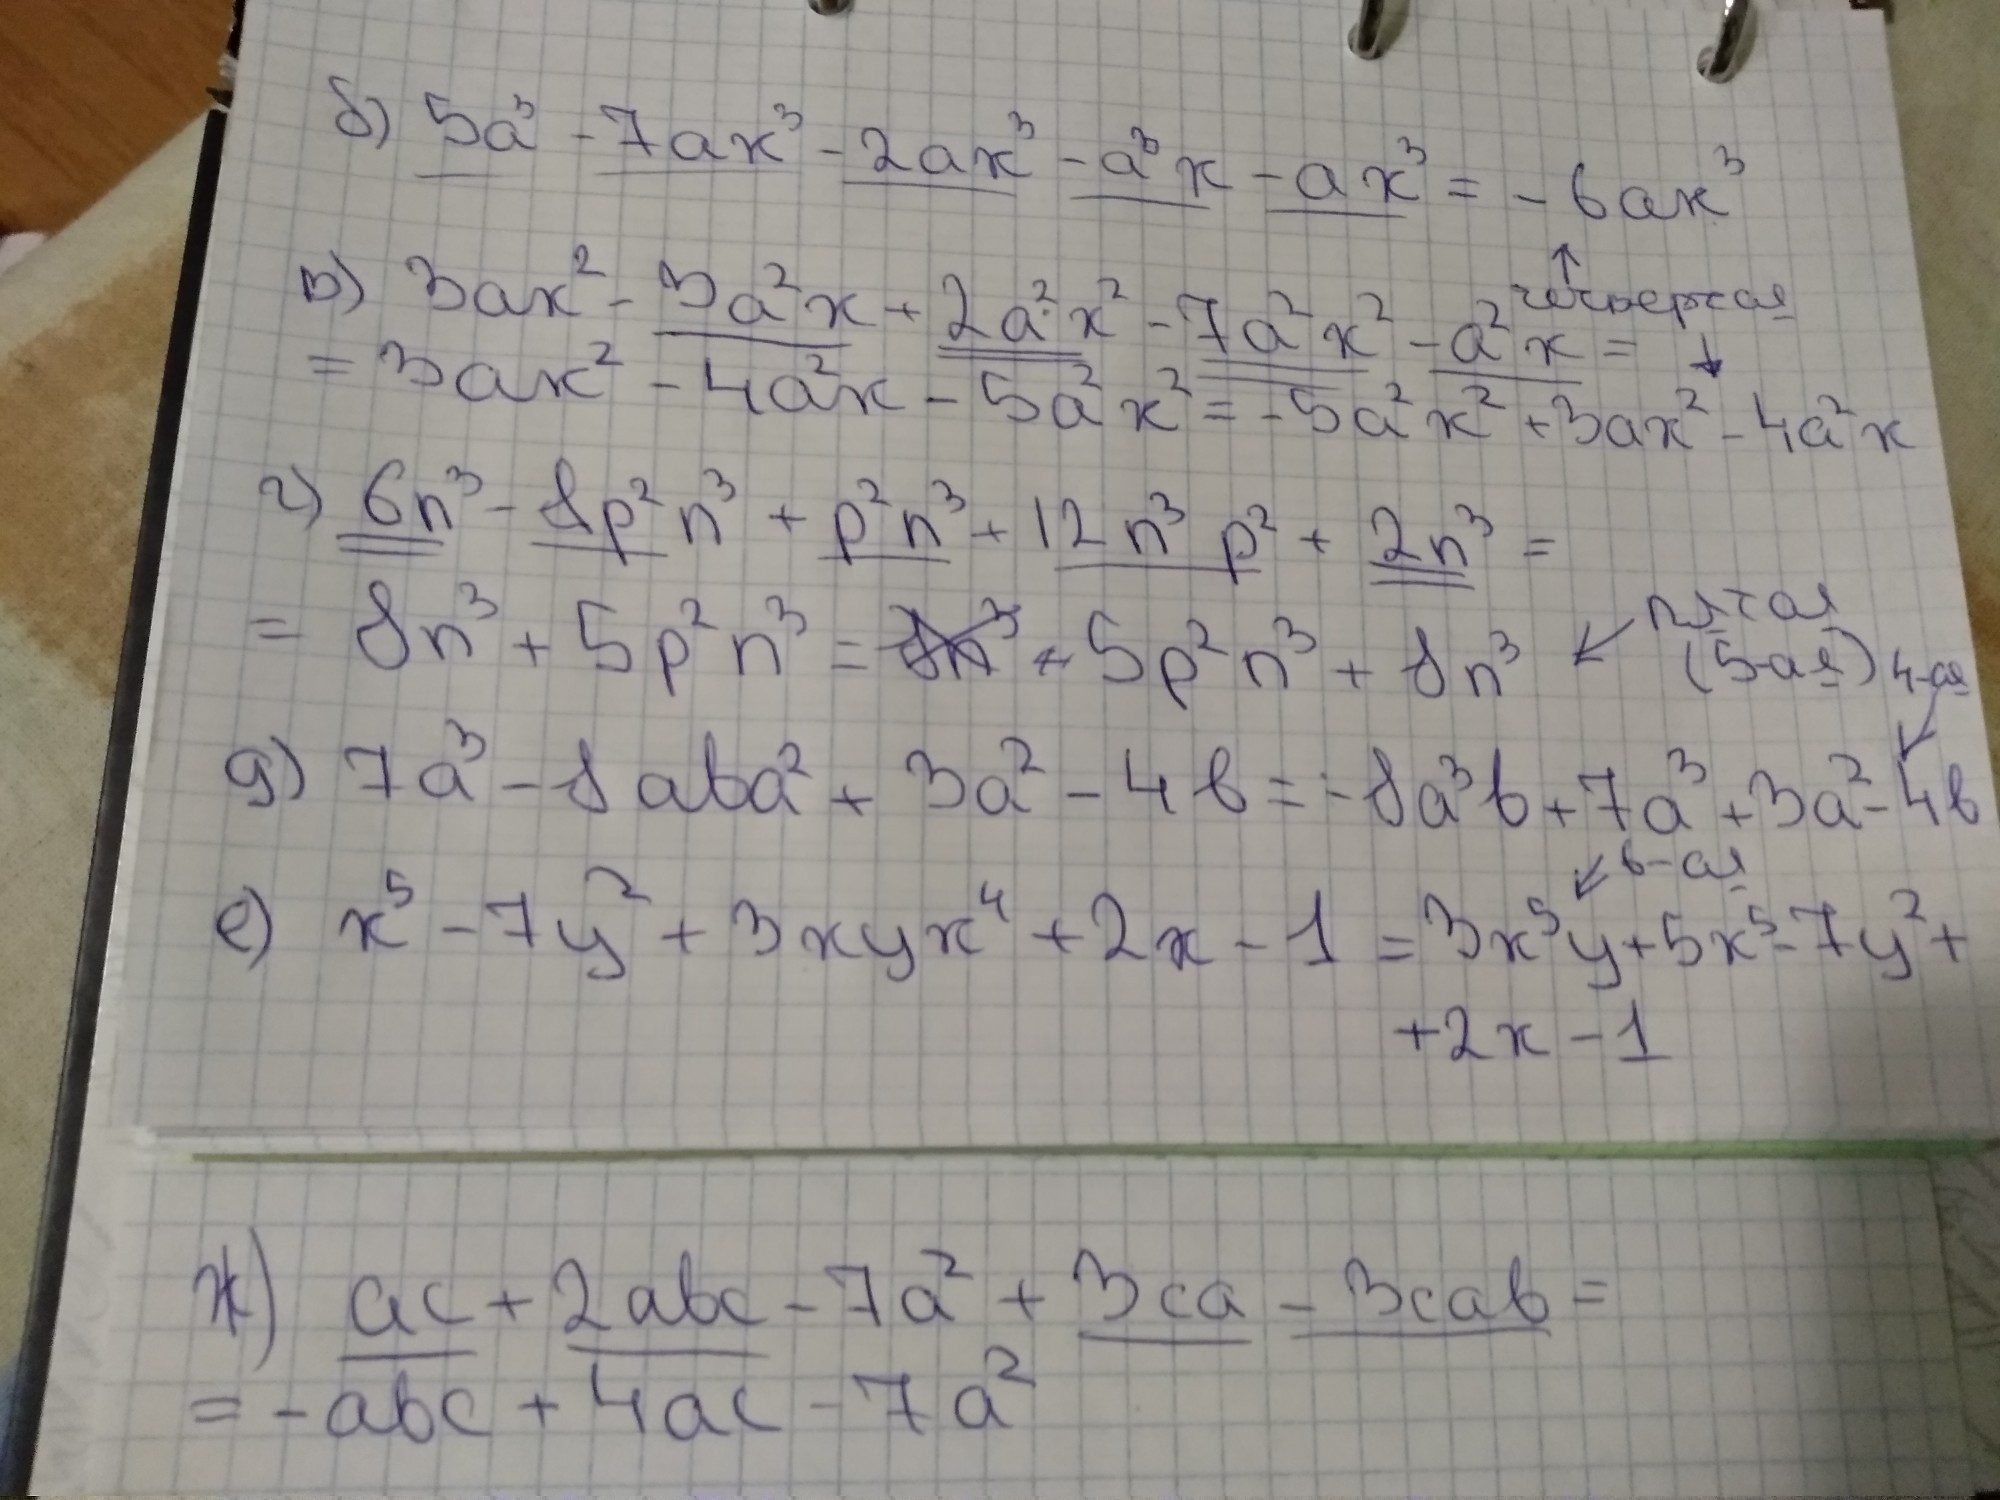 б) 5a³ - 7ax³ - 2ax³ - a³x - ax³ = - 6ax³
четвертая
в) 3ax² - 3a²x + 2a²x² - 7a²x² - a²x =
= 3ax² - 4a²x - 5a²x² = - 5a²x² + 3ax² - 4a²x
г) 6n³ - 8p²n³ + p²n³ + 12n³p² + 2n³ =
= 8n³ + 5p²n³ = + 5p²n³ + 8n³
пятая
(5-ая)
4-ая
д) 7a³ - 8aba² + 3a² - 4b = - 8a³b + 7a³ + 3a² - 4b
6-ая
е) x⁵ - 7y² + 3xyx⁴ + 2x - 1 = 3x⁵y + 5x⁵ - 7y² +
+ 2x - 1
ж) ac + 2abc - 7a² + 3ca - 3cab =
= - abc + 4ac - 7a²